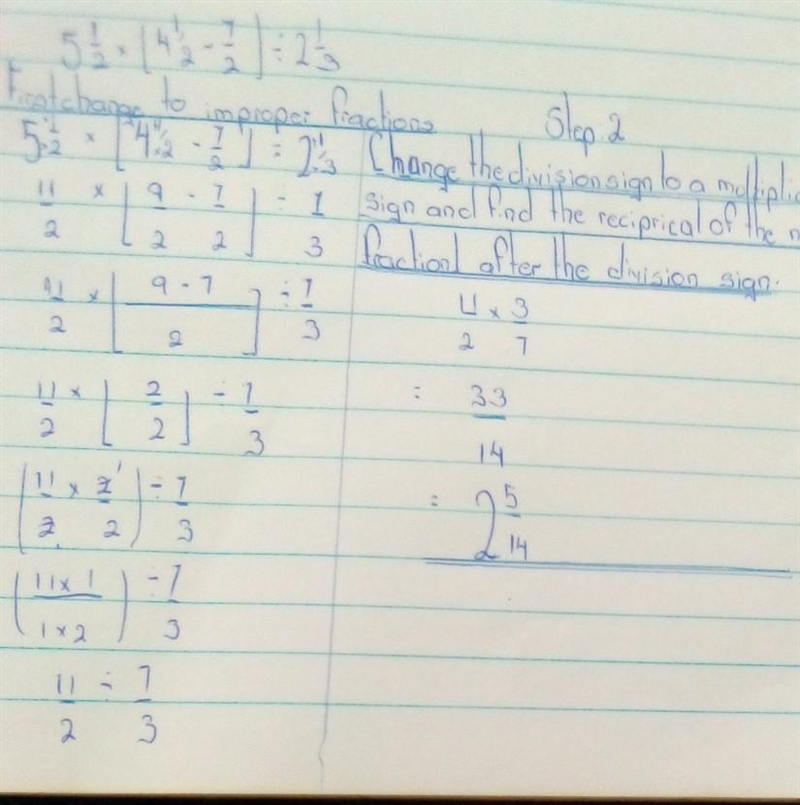 5 1/2 × [4 1/2 - 7/2] ÷ 2 1/3
First change to improper fractions
5 1/2 × [4 1/2 - 7/2] ÷ 2 1/3
11/2 × [9/2 - 7/2] ÷ 7/3
11/2 × [9 - 7 / 2] ÷ 7/3
11/2 × [2/2] ÷ 7/3
(11/2 × 2/2 1) ÷ 7/3
(11 × 1 / 1 × 2) ÷ 7/3
11/2 ÷ 7/3
Step 2
Change the division sign to a multiplic
sign and find the reciprical of the
fraction after the division sign.
11/2 × 3/7
= 33/14
= 2 5/14